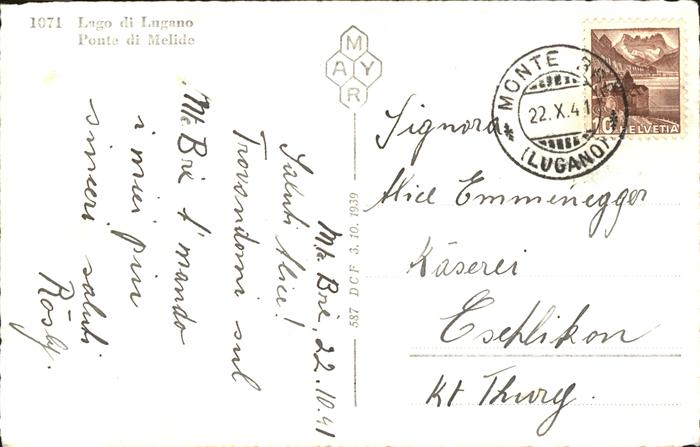 1071 Lago di Lugano
Ponte di Melide
MAYR
Mte Brè, 22.10.41
Saluti Alice!
Trovandomi sul
Mte Brè t'mando
i miei piu
sinceri saluti
Rösly.
587 DCF 3. 10. 1939
MONTE BRÈ
22.X.41
(LUGANO)
10 HELVETIA
Signora
Alice Emmenegger
Käserei
Eschlikon
Kt Thurg.